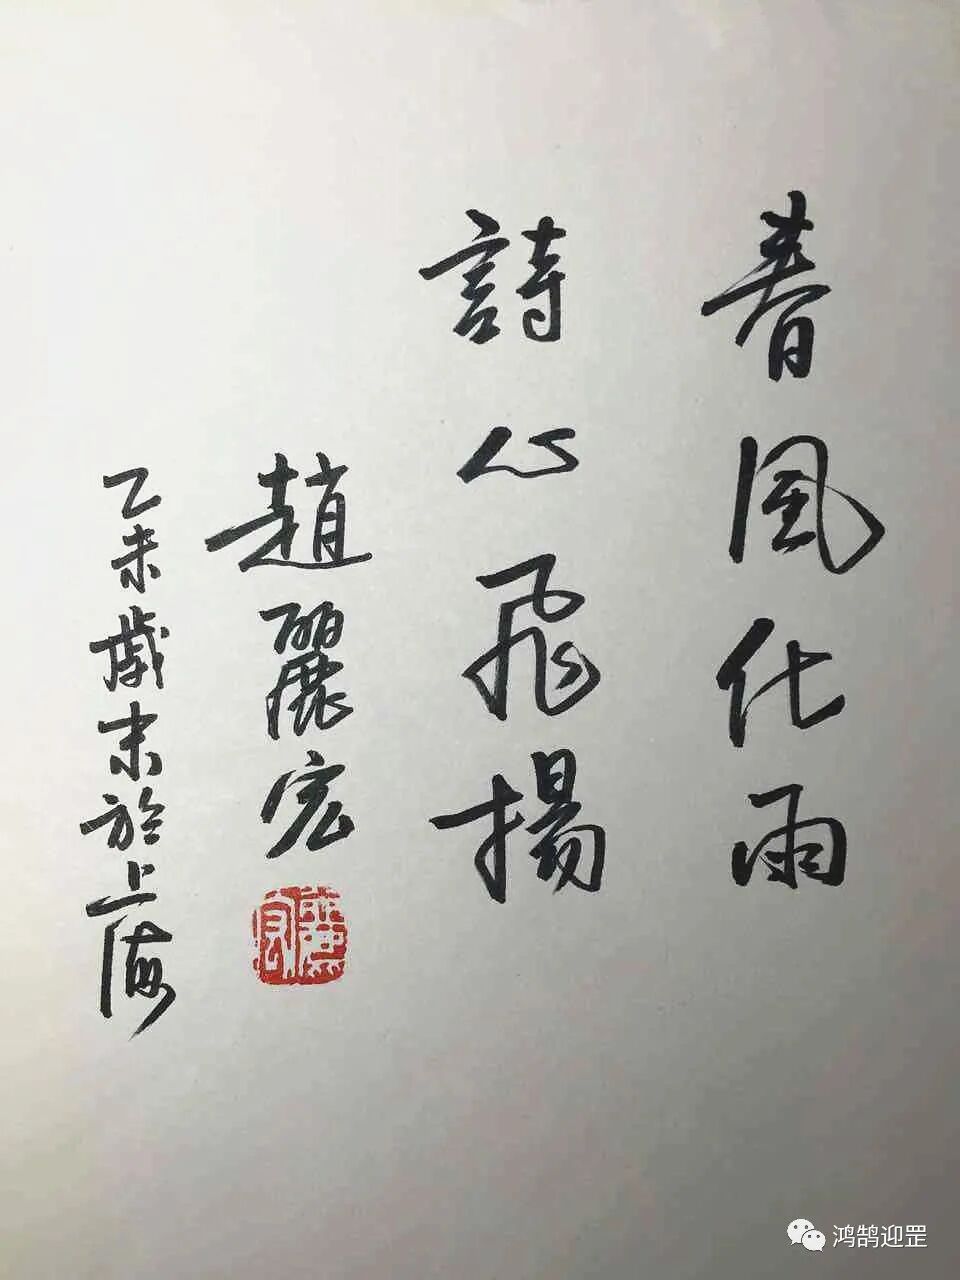 春風化雨
詩心飛揚
趙麗宏
乙未歲末於上海
鸿鹄迎罡